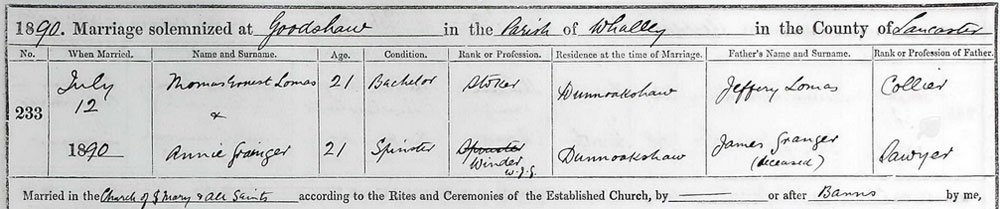 1890. Marriage solemnized at Goodshaw in the Parish of Whalley in the County of Lancaster
No. When Married. Name and Surname. Age. Condition. Rank or Profession. Residence at the time of Marriage. Father's Name and Surname. Rank or Profession of Father.
July Thomas Ernest Lomas 21 Bachelor Stoker Dunnoakshaw Jeffery Lomas Collier
12
233 &
1890 Annie Granger 21 Spinster Spinster Dunnoakshaw James Granger Sawyer
Winder (deceased)
W.J.G.
Married in the Church of S Mary & All Saints according to the Rites and Ceremonies of the Established Church, by — or after Banns by me,